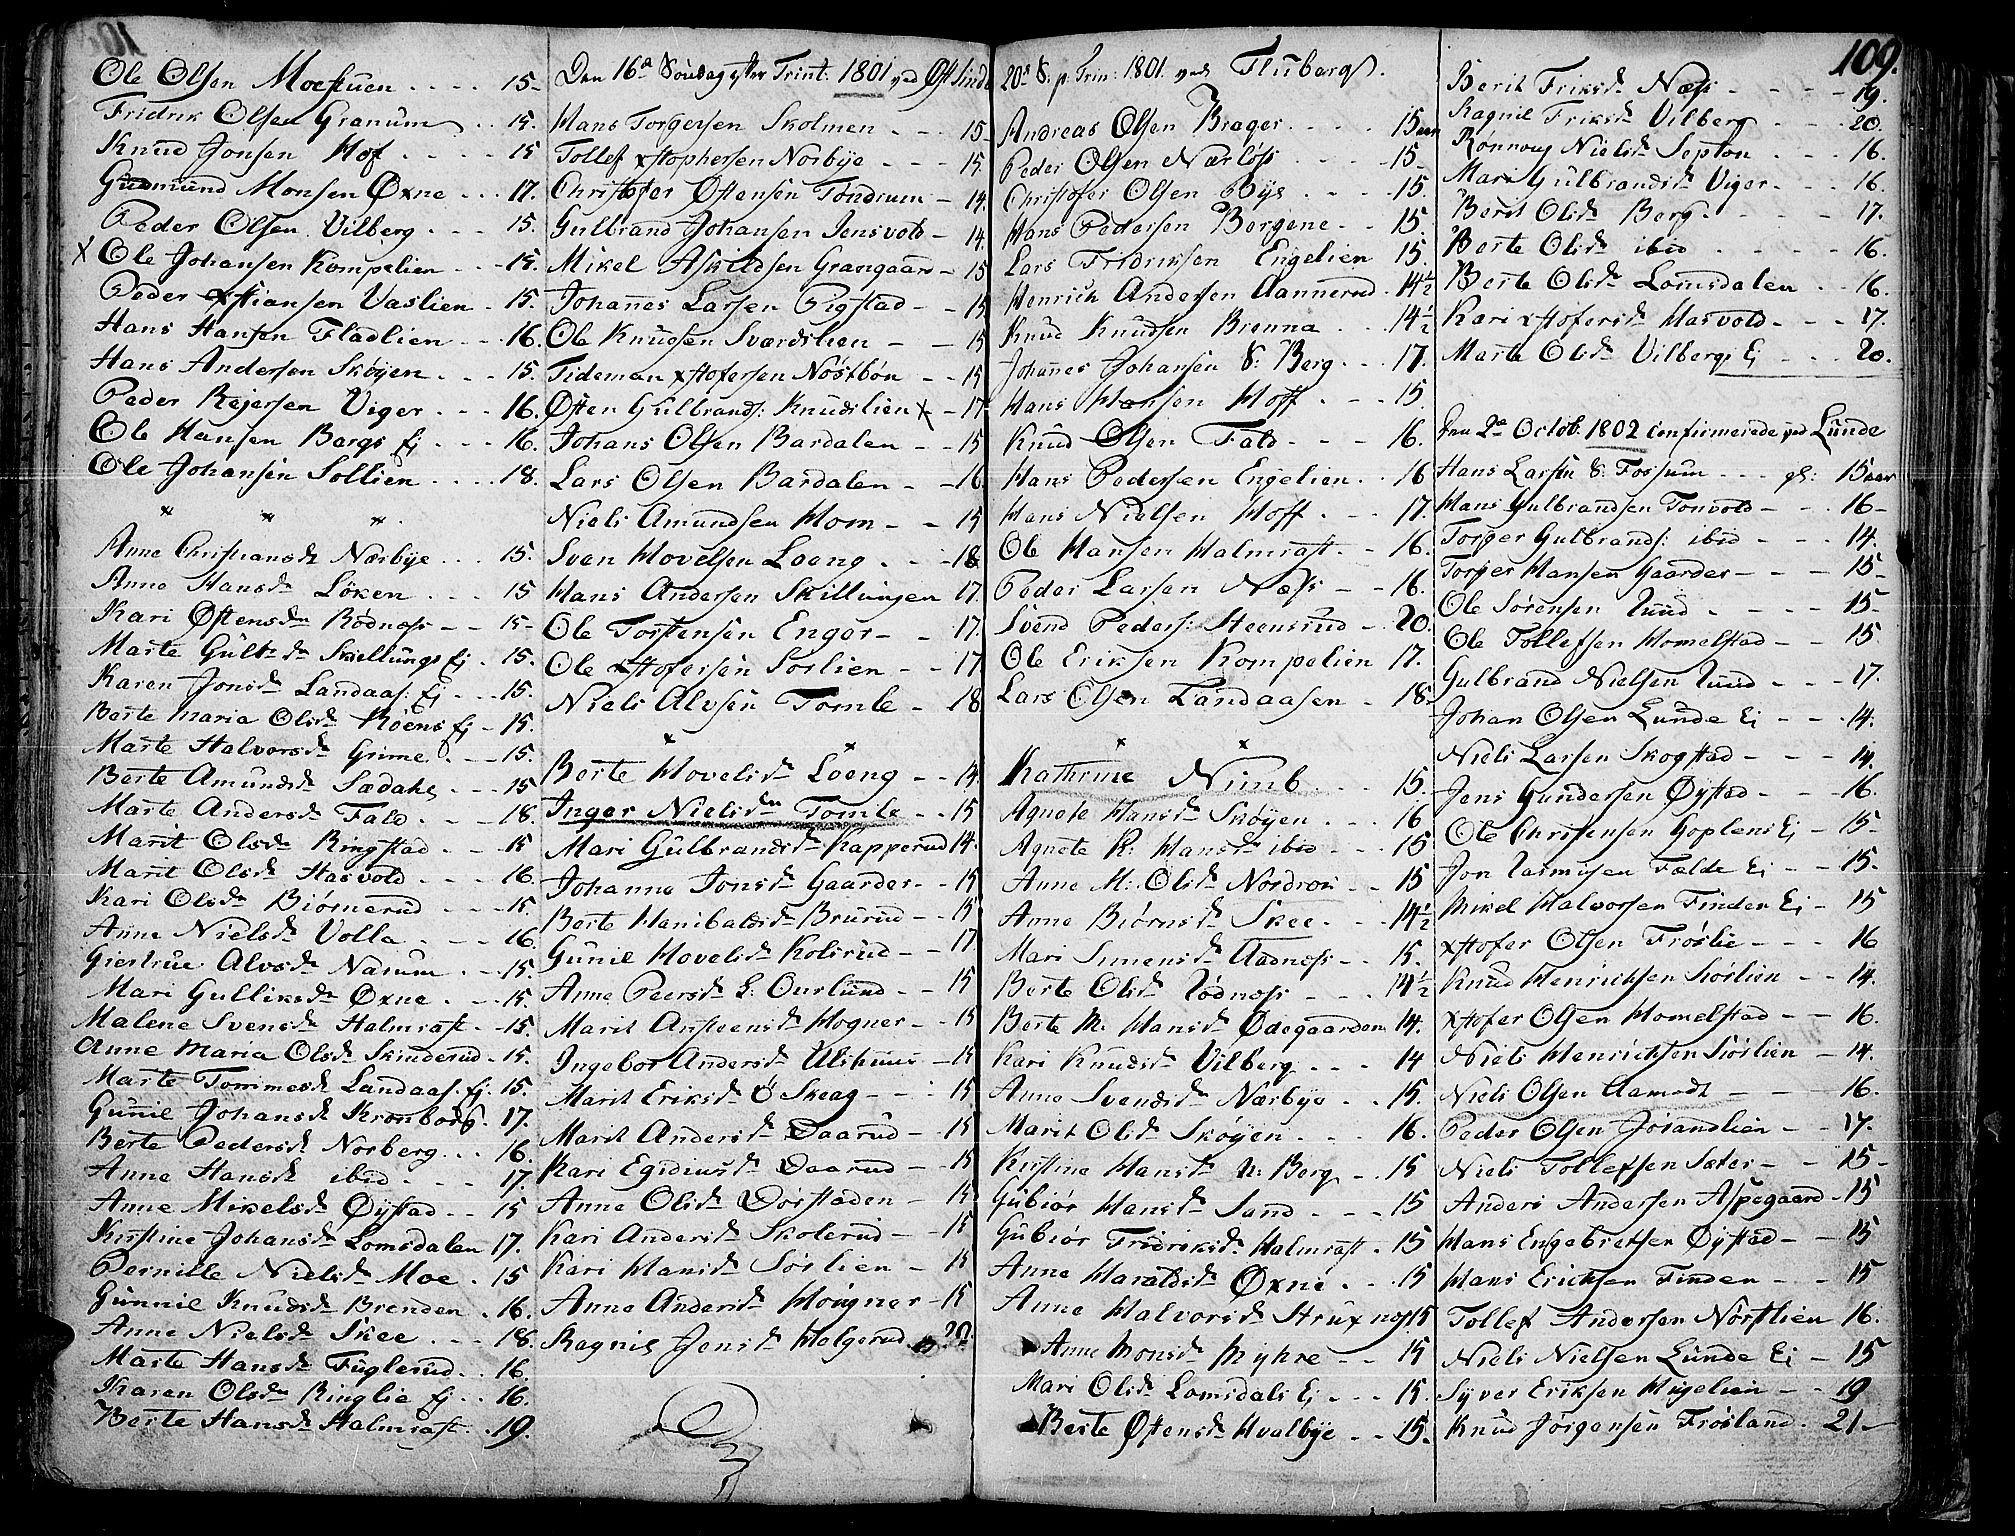 Ole Olsen Moestuen . . . . 15-
Fridrik Olsen Granum . . 15.
Knud Jonsen Hof . . . . 15
Gudmund Monsen Øxne . . . 17.
Peder Olsen Vilberg . . . 15.
x Ole Johansen Kompelien . . . 15.
Peder xstiansen Vaslien . 15.
Hans Hansen Fladlien - - 16.
Hans Andersen Skøyen . . . 15.
Peder Rejersen Viger . . . 16.
Ole Hansen Bergs Ej . . . 16.
Ole Johansen Sollien . . . . 18.
Anne Christiansdr Nærbye . . . 15.
Anne Hansdr Løken . . . . 15
Kari Østensdr Rødnæss - - 15-
Marte Gulb:dr Skiellungs Ej . 15.
Karen Jonsdr Landaas: Ej . . . 15.
Berte Maria Olsdr Røens Ej - 15.
Marte Halvorsdr Grime . . . 15.
Berte Amundsdr Sædahl . . . 15
Marte Andersdr Fald . . . 18.
Marit Olsdr Ringstad . . . 15
Marit Olsdr Hasvold . . . 16.
Kari Olsdr Biørnerud . . . 15.
Anne Nielsdr Volla . . . 16.
Giertrue Alvsdr Narum . . . 15.
Mari Gulliksdr Øxne . . . 15.
Malene Svensdr Halmrast . . 15.
Anne Maria Olsdr Skinderud - 15.
Marte Tommesdr Landaas. Ej. 15.
Gunil Johansdr Kronborg . 17.
Berte Pedersdr Norberg . . . 16.
Anne Hansdr ibid . . . 17.
Anne Mikelsdr Øystad . . 15
Kirstine Johansdr Lomsdalen 17.
Pernille Nielsdr Moe . 15
Gunnil Knudsdr Brenden . 16.
Anne Nielsdr Skee . . . 18.
Marte Hansdr Fuglerud . . 16.
Karen Olsdr Ringlie Ej . . 16.
Berte Hansdr Halmrast . . 19.
Den 16de Søndag efter Trint: 1801 ved Øst Sinde
Hans Torgersen Skolmen - - - 15
Tollef xstophersen Norbye - - - 15.
Christofer Østensen Tondrum - 14.
Gulbrand Johansen Jensvold - 14.
Mikel Askildsen Grangaard - 15
Johanes Larsen Rigstad - - 15
Ole Knudsen Sværdslien - - 15
Tideman xstofersen Nøstbøn - - 15
Østen Gulbrands: Knudslien x - 17
Johans Olsen Bardalen - - 15
Lars Olsen Bardalen - - 16.
Niels Amundsen Hom - - 15
Sven Hovelsen Loeng . . . 18
Hans Andersen Skillingen 17.
Ole Torstensen Enger - - 17.
Ole xstofersen Soslien - - 17
Niels Alvsen Tomle - 18
Berte Hovelsdr Loeng - - 14.
Inger Nielsdr Tomle . . 15
Mari Gulbrandsdr Kapperud 14.
Johanne Jonsdr Gaarder - - 15
Berte Hanibalsdr Brurud - - 15
Gunil Hovelsdr Kolsrud - - 17
Anne Peersdr L: Ourlund - - 15
Marit Ansteensdr Hogner - - 15
Ingebor Andersdr Ulshuus - 15
Marit Eriksdr Ø Skeag - - - 15
Marit Andersdr Daarud - 15
Kari Egidiusdr Daarud - - 15
Anne Olsdr Dørstaden - 15
Kari Andersdr Skolerud - - 15
Kari Hansdr Søslien - 15
Anne Andersdr Høigner - 15
Ragnil Jensdr Holgerud . 20.
20de S: p: Trin: 1801. ved Flubergs.
Andreas Olsen Brager . . . 15 aar
Peder Olsen Nærløss . . . . 15-
Christofer Olsen Bye . . . 15.
Hans Pedersen Bergene - - 15.
Lars Fridriksen Engelien 15.
Henrich Andersen Aannerud . 14½
Knud Knudsen Brenna . . . 14½
Johanes Johansen S: Berg . . . 17.
Hans Hansen Hoff . . . 15
Knud Olsen Fald - - - 16.
Hans Pedersen Engelien . . 16
Hans Nielsen Hoff . . . 17.
Ole Hansen Halmrast . . 16.
Peder Larsen Næss - - 16.
Svend Peders: Steensrud - 20.
Ole Eriksen Kompelien 17.
Lars Olsen Landaasen - 18.
Kathrine Nimb . . . 15.
Agnete Hansdr Skøyen . . . 16
Agnete K: Hansdr ibid - - - 15
Anne M: Olsdr Nordroe - - 15
Anne Biørnsdr Skee . . - 14½
Mari Simensdr Aadness - - 15.
Berte Olsdr Rødness - - - 14½
Berte M. Hansdr Ødegaarden 14.
Kari Knudsdr Vilberg . . . 14
Anne Svendsdr Nærbye . . 15.
Marit Olsdr Skøyen . . . 16.
Kirstine Hansdr N: Berg - 15
Gubiør Hansdr Sand . . . 15
Gubiør Fridriksdr Halmrast . 15
Anne Haraldsdr Øxne . . . 15
Anne Halvorsdr Struxness 15
Anne Monsdr Myhre - - 15
Mari Olsdr Lomsdals Ej - - 15.
Berte Østensdr Hvalbye - - 15.
109.
Berit Eriksdr Næss . - - - 19.
Ragnil Eriksdr Vilberg . - - 20.
Rønnoug Nielsdr Septon . . . 16.
Mari Gulbrandsdr Viger . . . 16.
Berit Olsdr Berg . - - - 17.
Berte Olsdr ibid . - - - 16.
Berte Olsdr Lomsdalen . . 16.
Kari xstofersdr Hasvold - - - 17.
Marte Olsdr Vilbergs Ej . . . 20.
Den 2de Octob: 1802 confirmerede ved Lunde
Hans Larsen S: Fossum . . . gl: 15 aar
Hans Gulbrandsen Tonvold - - - 16-
Torger Gulbrands: ibid - - - 14.
Torger Hansen Gaarder - - - 15-
Ole Sørensen Ruud . - - - 15-
Ole Tollefsen Homelstad - - 15.
Gulbrand Nielsen Ruud - - - 17.
Johan Olsen Lunde Ej - - - 14.
Niels Larsen Skogstad - - - 14.
Jens Gundersen Øystad - - - 16.
Ole Christensen Goplens Ej - 15-
Jon Rasmusen Fælde Ej - - 15.
Mikel Halvorsen Finden Ej - 15
xstofer Olsen Frøslie - - - 16
Knud Henrichsen Søslien - - 14.
xstofer Olsen Homelstad - - 16.
Niels Henrichsen Søslien - 14.
Niels Olsen Aamodt - - 16.
Peder Olsen Jøsandlien - - 17.
Niels Tollefsen Sæter - - 15-
Anders Andersen Aspegaard - 15
Hans Engebretsen Øystad - - 15
Hans Erichsen Finden - - 15
Tollef Andersen Nørstlien 16.
Niels Nielsen Lunde Ej - 15
Syver Eriksen Hugelien - - 19
Knud Jørgensen Frøsland . 21-